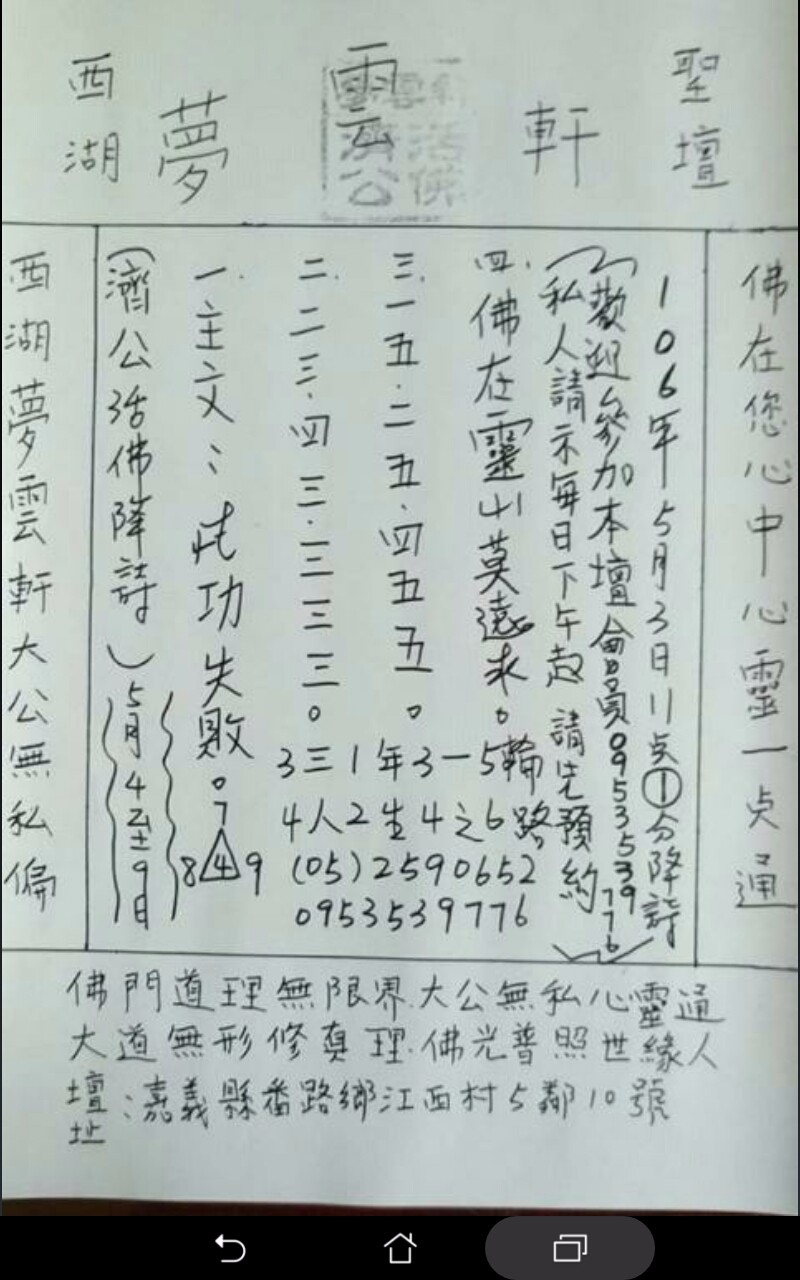 西湖 夢 雲 軒 聖壇
雲軒
活佛
濟公
佛在您心中心靈一点通
106年5月3日11点①分降詩
(歡迎參加本壇會員0953539776
私人請示每日下午起 請先預約)
四.佛在靈山莫遠求。
三.一五.二五.四五五。
二.二三.四三.三三三。
一.主文:成功失敗。
7
8 4 9
3三1年3一5輪
4人2生4之6路
(05)2590652
0953539776
(濟公活佛降詩)
5月4至9日
西湖夢雲軒大公無私偏
佛門道理無限界.大公無私心靈通
大道無形修真理.佛光普照世緣人
壇址:嘉義縣番路鄉江西村5鄰10號